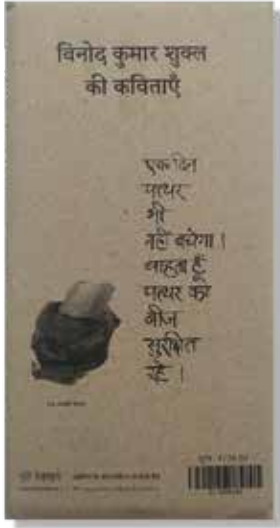 विनोद कुमार शुक्ल
की कविताएँ
एक दिन
पत्थर
भी
नहीं बचेगा ।
चाहता हूँ
पत्थर का
बीज
सुरक्षित
रहे ।